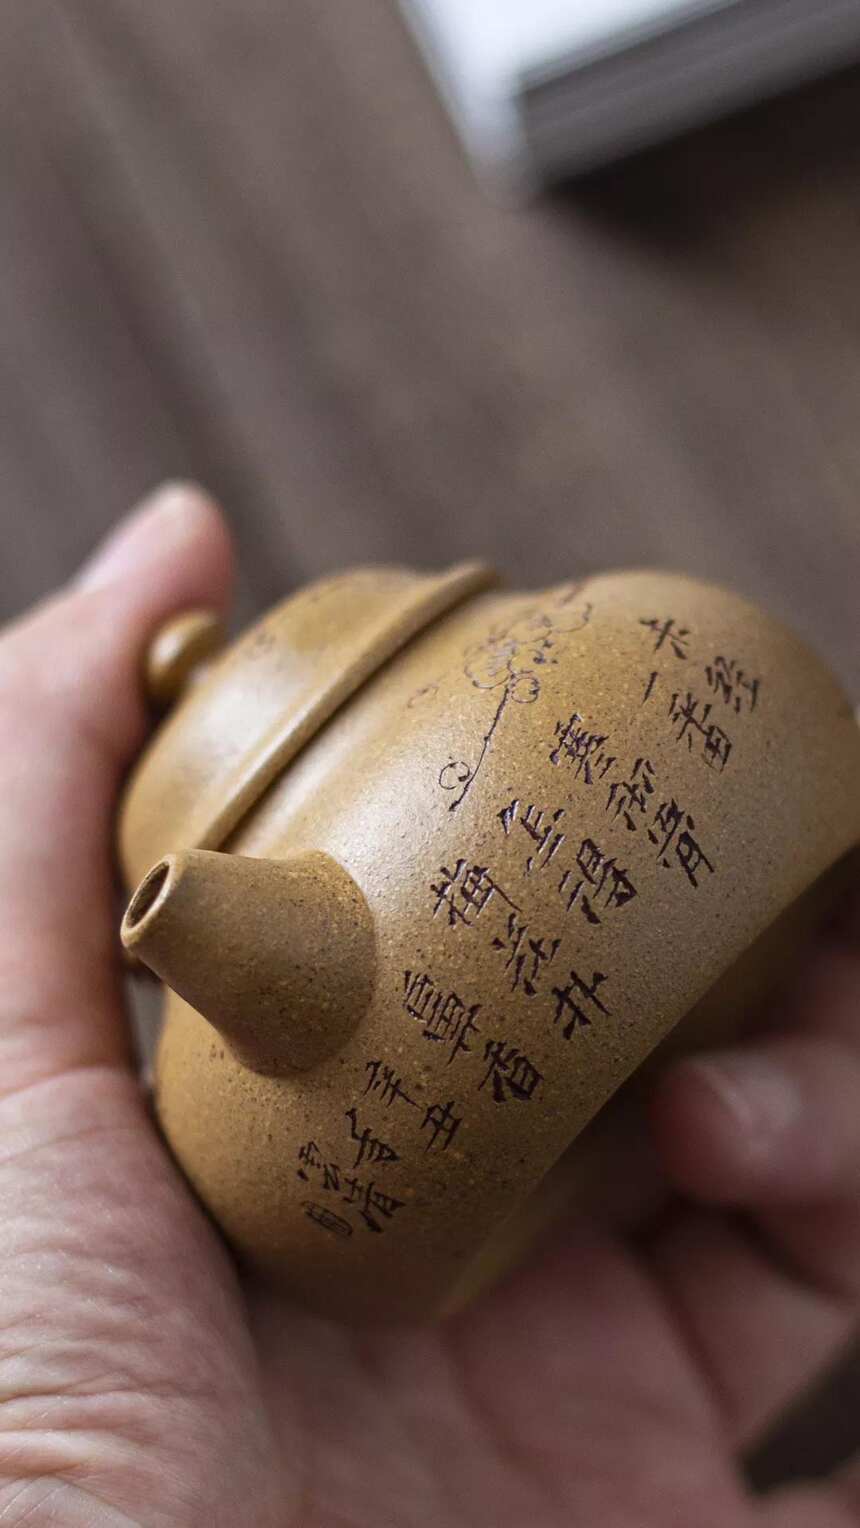 不經
一番
寒徹骨
怎得
梅花撲
鼻香
辛丑